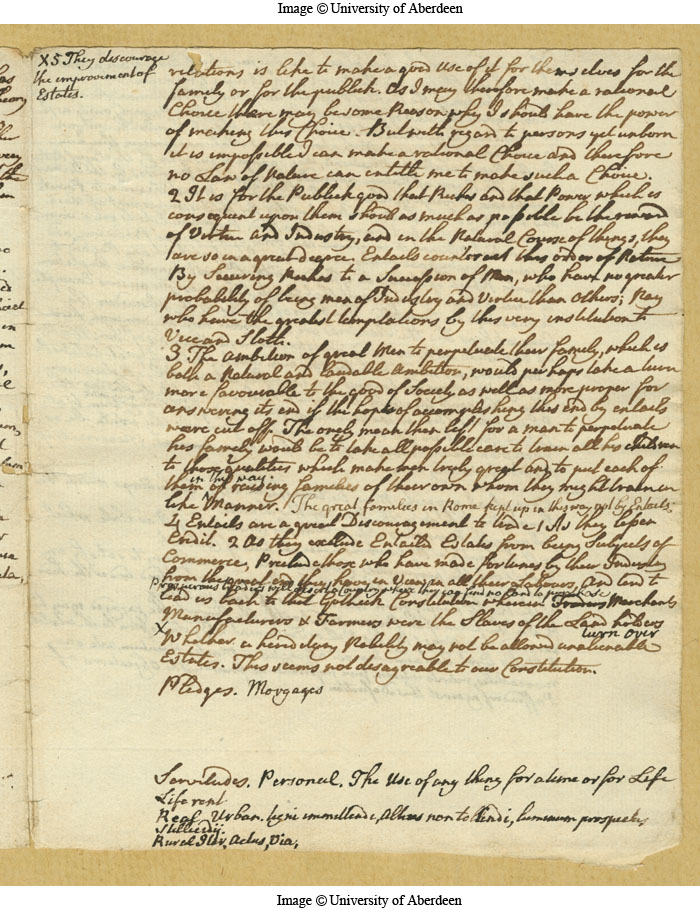 Image © University of Aberdeen
X 5 They descourage
the improvement of
Estates.
relations is like to make a good Use of it for themselves for the
family or for the publick. As I may therefore make a rational
Choice there may be some Reason why I should have the power
of making this Choice. But with regard to persons yet unborn
it is impossible I can make a rational Choice and therefore
no Law of Nature can entitle me to make such a Choice.
2 It is for the Publick good that Riches and that Power which is
consequent upon them should as much as possible be the reward
of Virtue and Industry, and in the Natural Course of things, they
are so in a great degree. Entails counteract this order of Nature
By Securing Riches to a Succession of Men, who have no greater
probability of being men of Industry and Virtue than others; Nay
who have the greatest temptations by this very institution to
Vice and Sloth.
3 The Ambition of great Men to perpetuate their family, which is
both a Natural and laudable Ambition, would perhaps take a turn
more favourable to the good of Society as well as more proper for
answering its end if the hopes of accomplishing this end by entails
were cut off. The onely mean then left for a man to perpetuate
his family would be to take all possible care to train all his children
to those qualities which make men truly great and to put each of
them in the way of raising families of their own whom they might train in
like Manner. The great families in Rome kept up in this way not by Entails.
4 Entails are a great Discouragement to 1 As they lessen
2 As they exclude Entaild Estates from being Subjects of
Commerce, Preclude those who have made fortunes by their Industry
from the great end they have in View in all their Labours, And tend to
prosperous Traders will desert a Country where they can find no land to purchase
lead us back to that Gothick Constitution wherein Traders Merchants
Manufacturers & Farmers were the Slaves of the Land holders
X turn over
Whether a hereditary Nobility may not be allowed unalienable
Estates. This seems not disagreable to our Constitution.
Pledges. Morgages
Servitudes. Personal. The Use of any thing for a time or for Life
Life rent
Real Urban. tigni immittendi, Altius non tollendi, luminum prospectus
Stillicidij.
Rural Iter, Actus, Via,
Image © University of Aberdeen